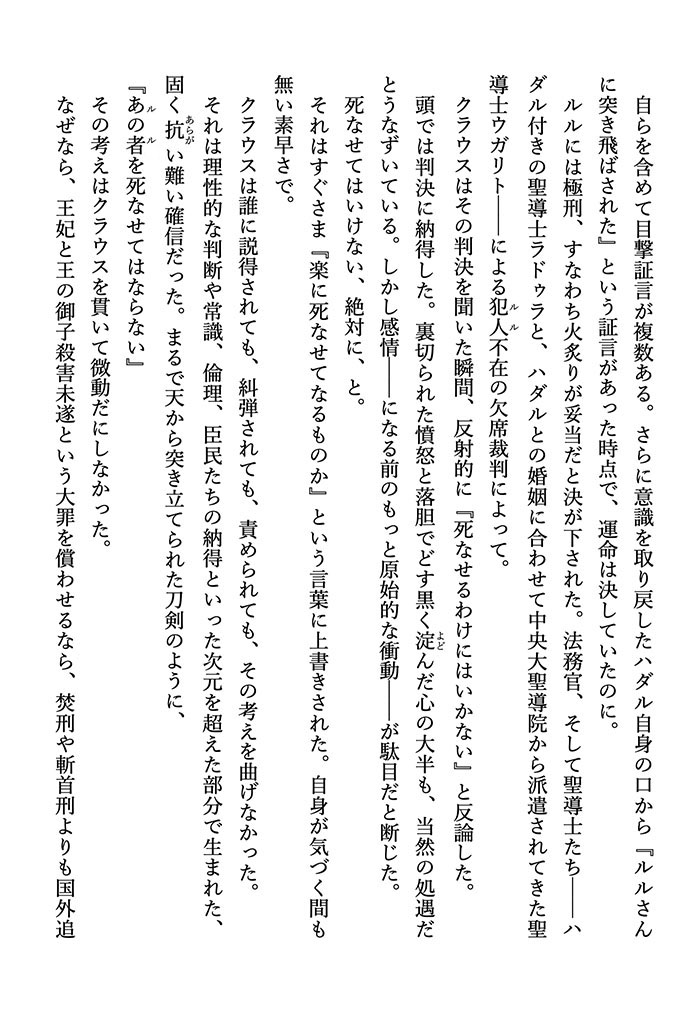 自らを含めて目撃証言が複数ある。さらに意識を取り戻したハダル自身の口から『ルルさん
に突き飛ばされた』という証言があった時点で、運命は決していたのに。
ルルには極刑、すなわち火炙りが妥当だと決が下された。法務官、そして聖導士たち――ハ
ダル付きの聖導士ラドゥラと、ハダルとの婚姻に合わせて中央大聖導院から派遣されてきた聖
導士ウガリト――による犯人不在の欠席裁判によって。
ルル
クラウスはその判決を聞いた瞬間、反射的に『死なせるわけにはいかない』と反論した。
頭では判決に納得した。裏切られた憤怒と落胆でどす黒く淀んだ心の大半も、当然の処遇だ
よど
とうなずいている。しかし感情――になる前のもっと原始的な衝動――が駄目だと断じた。
死なせてはいけない、絶対に、と。
それはすぐさま『楽に死なせてなるものか』という言葉に上書きされた。自身が気づく間も
無い素早さで。
クラウスは誰に説得されても、糾弾されても、責められても、その考えを曲げなかった。
それは理性的な判断や常識、倫理、臣民たちの納得といった次元を超えた部分で生まれた、
固く抗い難い確信だった。まるで天から突き立てられた刀剣のように、
あらが
『あの者を死なせてはならない』
ルル
その考えはクラウスを貫いて微動だにしなかった。
なぜなら、王妃と王の御子殺害未遂という大罪を償わせるなら、焚刑や斬首刑よりも国外追